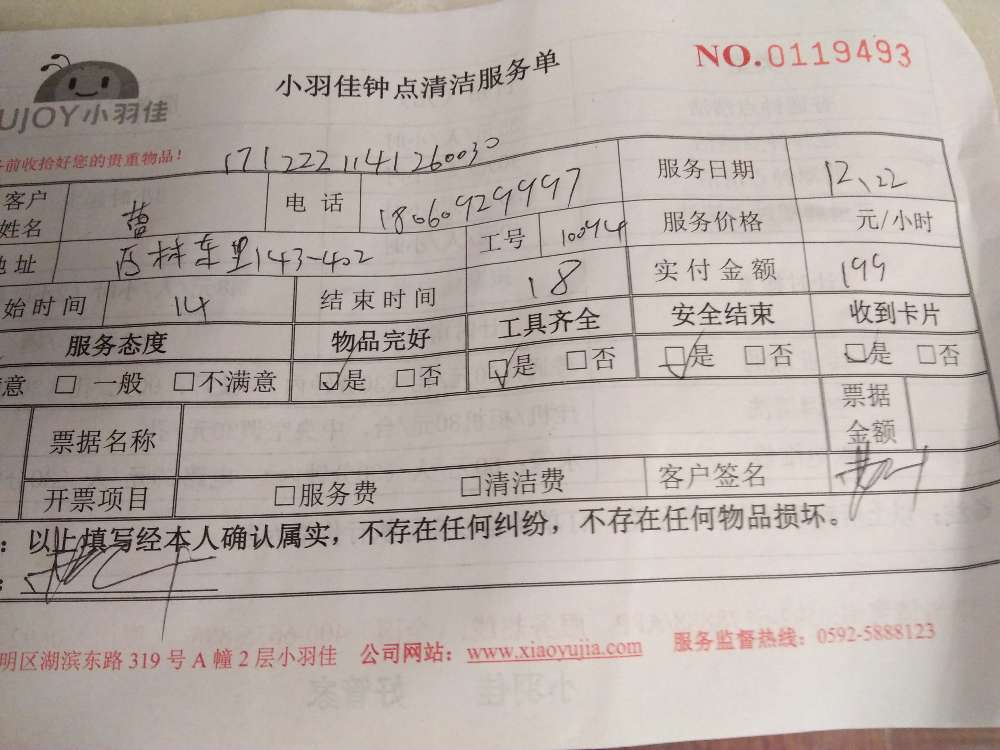 NO.0119493
UJOY小羽佳
小羽佳钟点清洁服务单
前收拾好您的贵重物品！
1712221141260030
客户姓名 曹 电话 18060929997 服务日期 12、22
地址 143-402 工号 10094 服务价格 元/小时
始时间 14 结束时间 18 实付金额 199
服务态度 物品完好 工具齐全 安全结束 收到卡片
意 □ 一般 □不满意 ☑是 □否 ☑是 □否 ☑是 □否 ☑是 □否
票据名称 票据金额
开票项目 □服务费 □清洁费 客户签名
：以上填写经本人确认属实，不存在任何纠纷，不存在任何物品损坏。
明区湖滨东路 319 号 A 幢 2 层小羽佳 公司网站：www.xiaoyujia.com 服务监督热线：0592-5888123